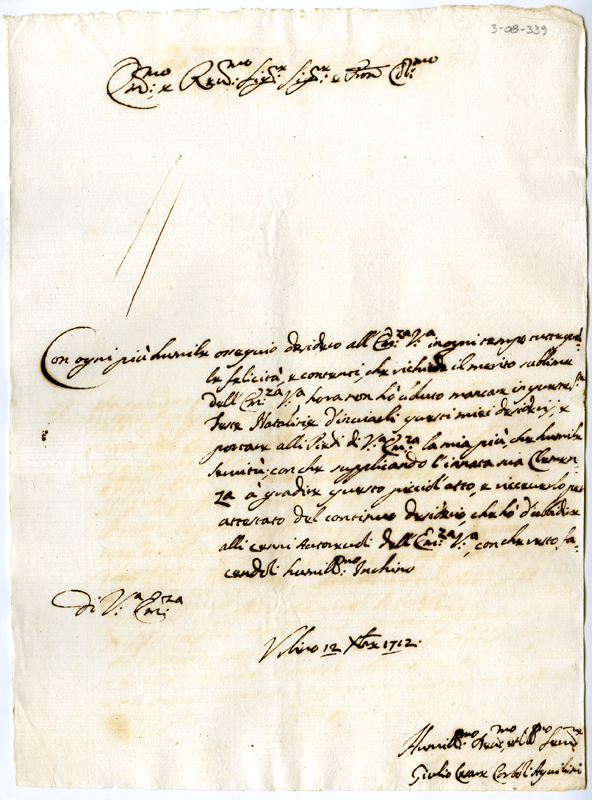 3-08-339
Em:mo e Reu:mo Sig:r Sig:r e Pron Col:mo
Con ogni più humile ossequio desidero all'Em:za V:a in ogni tempo tutte quel-
le felicità, e contenti, che richiede il merito sublime
dell'Em:za V:a hora non hò uoluto mancare in queste S:te
Feste Natalizie d'inuiarli questi miei desiderij, e
portare alli Piedi di V:a Em:za la mia più che humile
seruitù; con che supplicando l'innata sua Clemen-
za à gradire questo picciol'atto, e riceuerlo per
attestato del continuo desiderio, che hò d'ubidire
alli cenni Autoreuoli dell'Em:za V:a, con che resto fa-
cendoli humill:mo Inchino
Di V:a Em:za
Vrbino 12 Xbre 1712:
Humill:mo Deu:mo et Obl:mo Seru:re
Giulio Cesare Corboli Aquilini